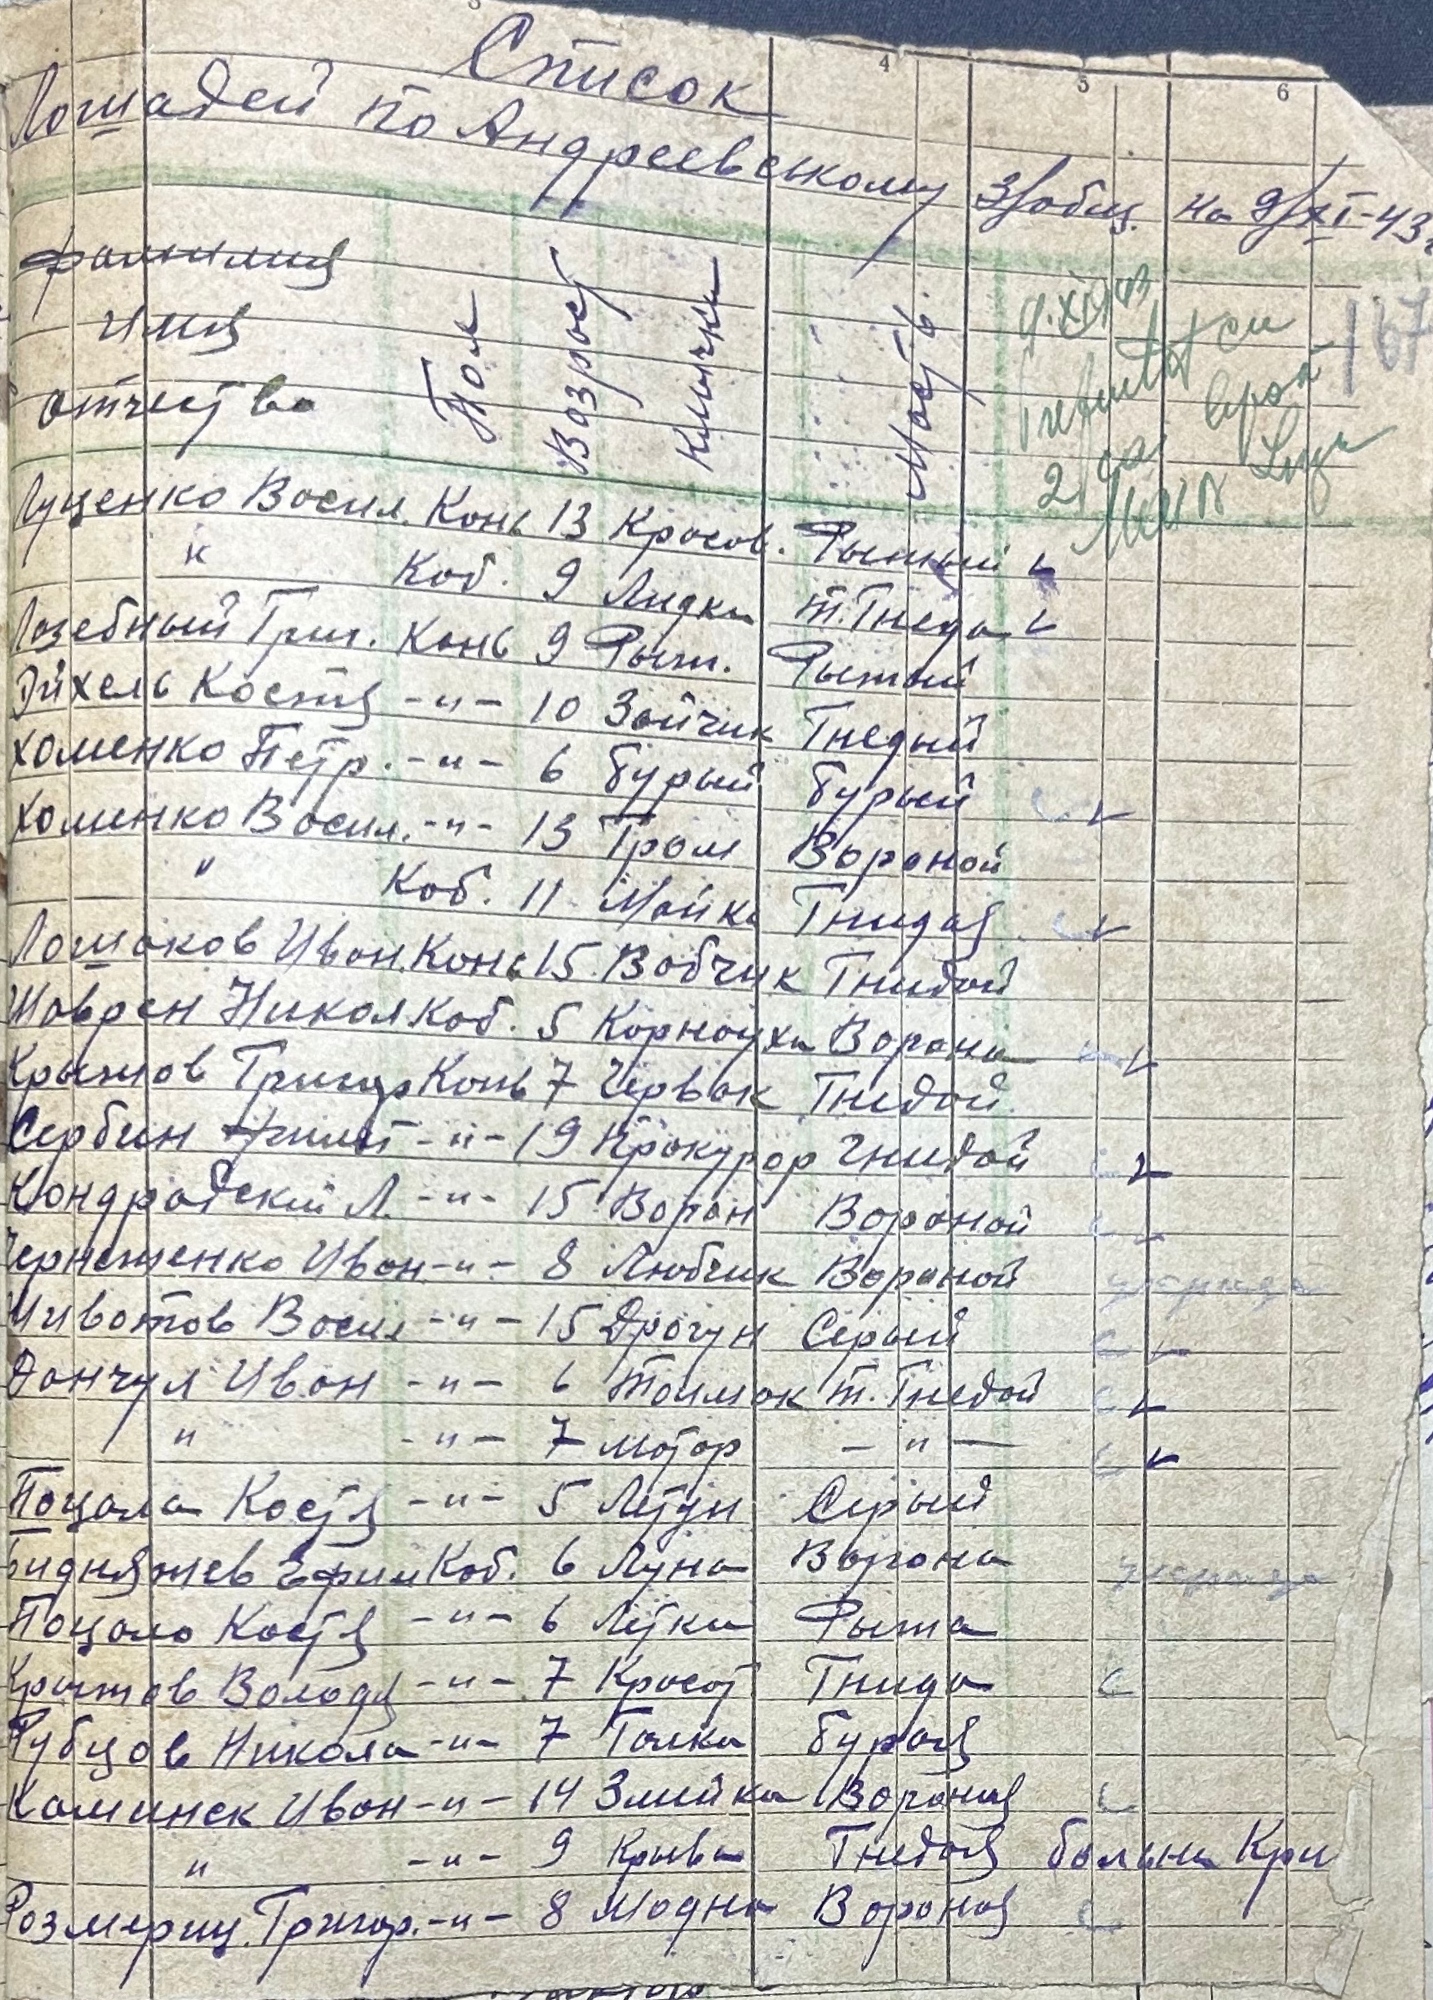 3 4 5 6
Список
Лошадей по Андреевському З/общ. на 9/XI-43г
Фамилия имя отчество Пол Возрост Кличка Масть
9.XI 943
167
Луценко Восил. Конь 13 Красов. Рыжый
" Коб. 9 Лидка т. Гнеда
Лозебный Григ. Конь 9 Рыж. Рыжый
Эйхель Костя -"- 10 Зайчик Гнедый
Хоменко Петр. -"- 6 Бурый Бурый
Хоменко Восил. -"- 13 Гром Вороной
" Коб. 11 Майка Гнидая
Ломаков Иван. Конь 15 Вобчик Гнидой
Шаврен Никол Коб. 5 Корноуха Ворона
Крыжов Григор Конь 7 Червак Гнидой
Сербин Филип -"- 19 Прокурор Гнидой
Кондрадский Л. -"- 15 Воран Вороной
Чернеженко Иван -"- 8 Любчик Вороной
Животов Восил -"- 15 Драгун Серый
Данчул Иван -"- 6 т. Гнедой
" -"- 7 Мотор -"-
Поцала Костя -"- 5 Летун Серый
Бидняжев Ефим Коб. 6 Луна Ворона
Поцало Костя -"- 6 Летка Рыжа
Крыжов Володя -"- 7 Красот Гнида
Рубцов Никола -"- 7 Галка Бурая
Каминск Иван -"- 14 Змейка Вороная
" -"- 9 Крыва Гнедая больна Кри
Розмериц. Григор. -"- 8 Модна Вороная